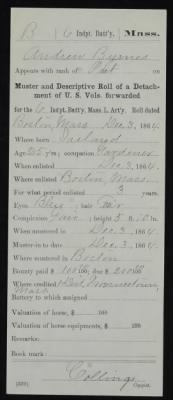 B | 6 Indpt. Batt'y, Mass.
Andrew Byrnes
Appears with rank of Pvt on
Muster and Descriptive Roll of a Detach-
ment of U. S. Vols. forwarded
for the 6 Indpt. Batty. Mass. L. Arty. Roll dated
Boston, Mass Dec. 3, 1864.
Where born Ireland
Age 25 y'rs; occupation Gardener
When enlisted Dec. 3, 1864.
Where enlisted Boston, Mass.
For what period enlisted 3 years.
Eyes Blue; hair Fair
Complexion Fair; height 5 ft. in.
When mustered in Dec. 3, 1864.
Muster-in to date Dec. 3, 1864.
Where mustered in Boston
Bounty paid $ 100; due $ 100
Where credited Provincetown,
Mass
Battery to which assigned
Valuation of horse, $ 100
Valuation of horse equipments, $ 100
Remarks:
Book mark:
Collins
(339) Copyist.